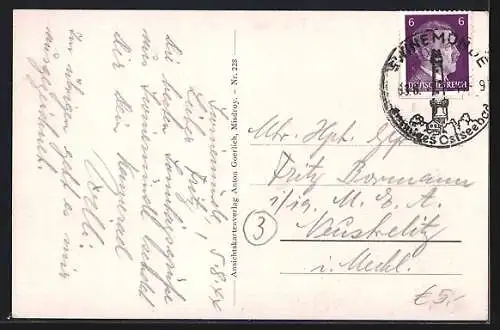 Swinemünde, 5.8.44
Lieber Fritz!
Die besten Sonntagsgrüße
aus Swinemünde sendet
Dir Dein Kamerad
Willi.
Im übrigen geht es mir
ausgezeichnet.
Ansichtskartenverlag Anton Goerlich, Misdroy. — Nr. 228
6 6
DEUTSCHES REICH
SWINEMÜNDE
Ostseebad
Fritz Bormann
Neustrelitz
i. Meckl.
3
€ 5,-